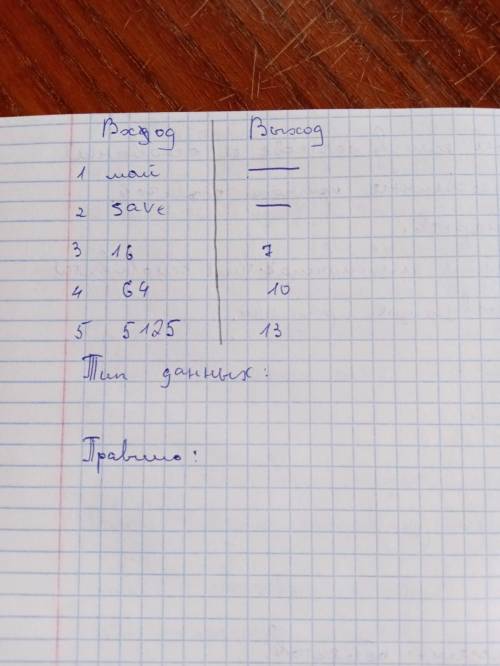 Вход Выход
1 май —
2 save —
3 16 7
4 64 10
5 5125 13
Тип данных:
Правило: